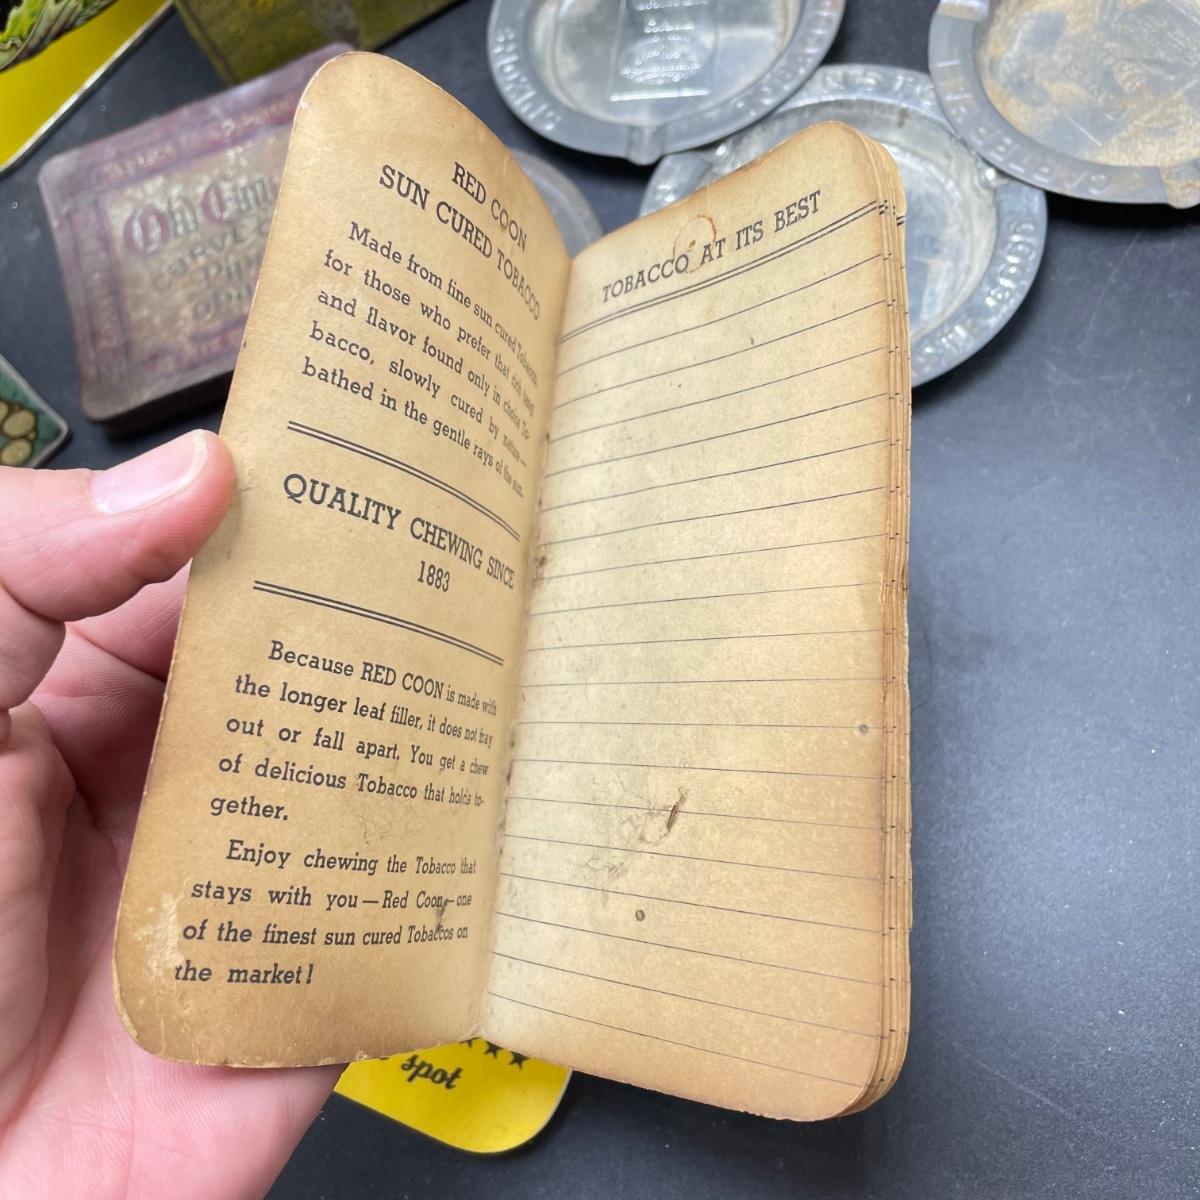 RED COON
SUN CURED TOBACCO
Made from fine sun cured Tobacco,
for those who prefer that rich tang
and flavor found only in choice To-
bacco, slowly cured by nature—
bathed in the gentle rays of the sun.
QUALITY CHEWING SINCE
1883
Because RED COON is made with
the longer leaf filler, it does not fray
out or fall apart. You get a chew
of delicious Tobacco that holds to-
gether.
Enjoy chewing the Tobacco that
stays with you—Red Coon—one
of the finest sun cured Tobaccos on
the market!
TOBACCO AT ITS BEST
spot